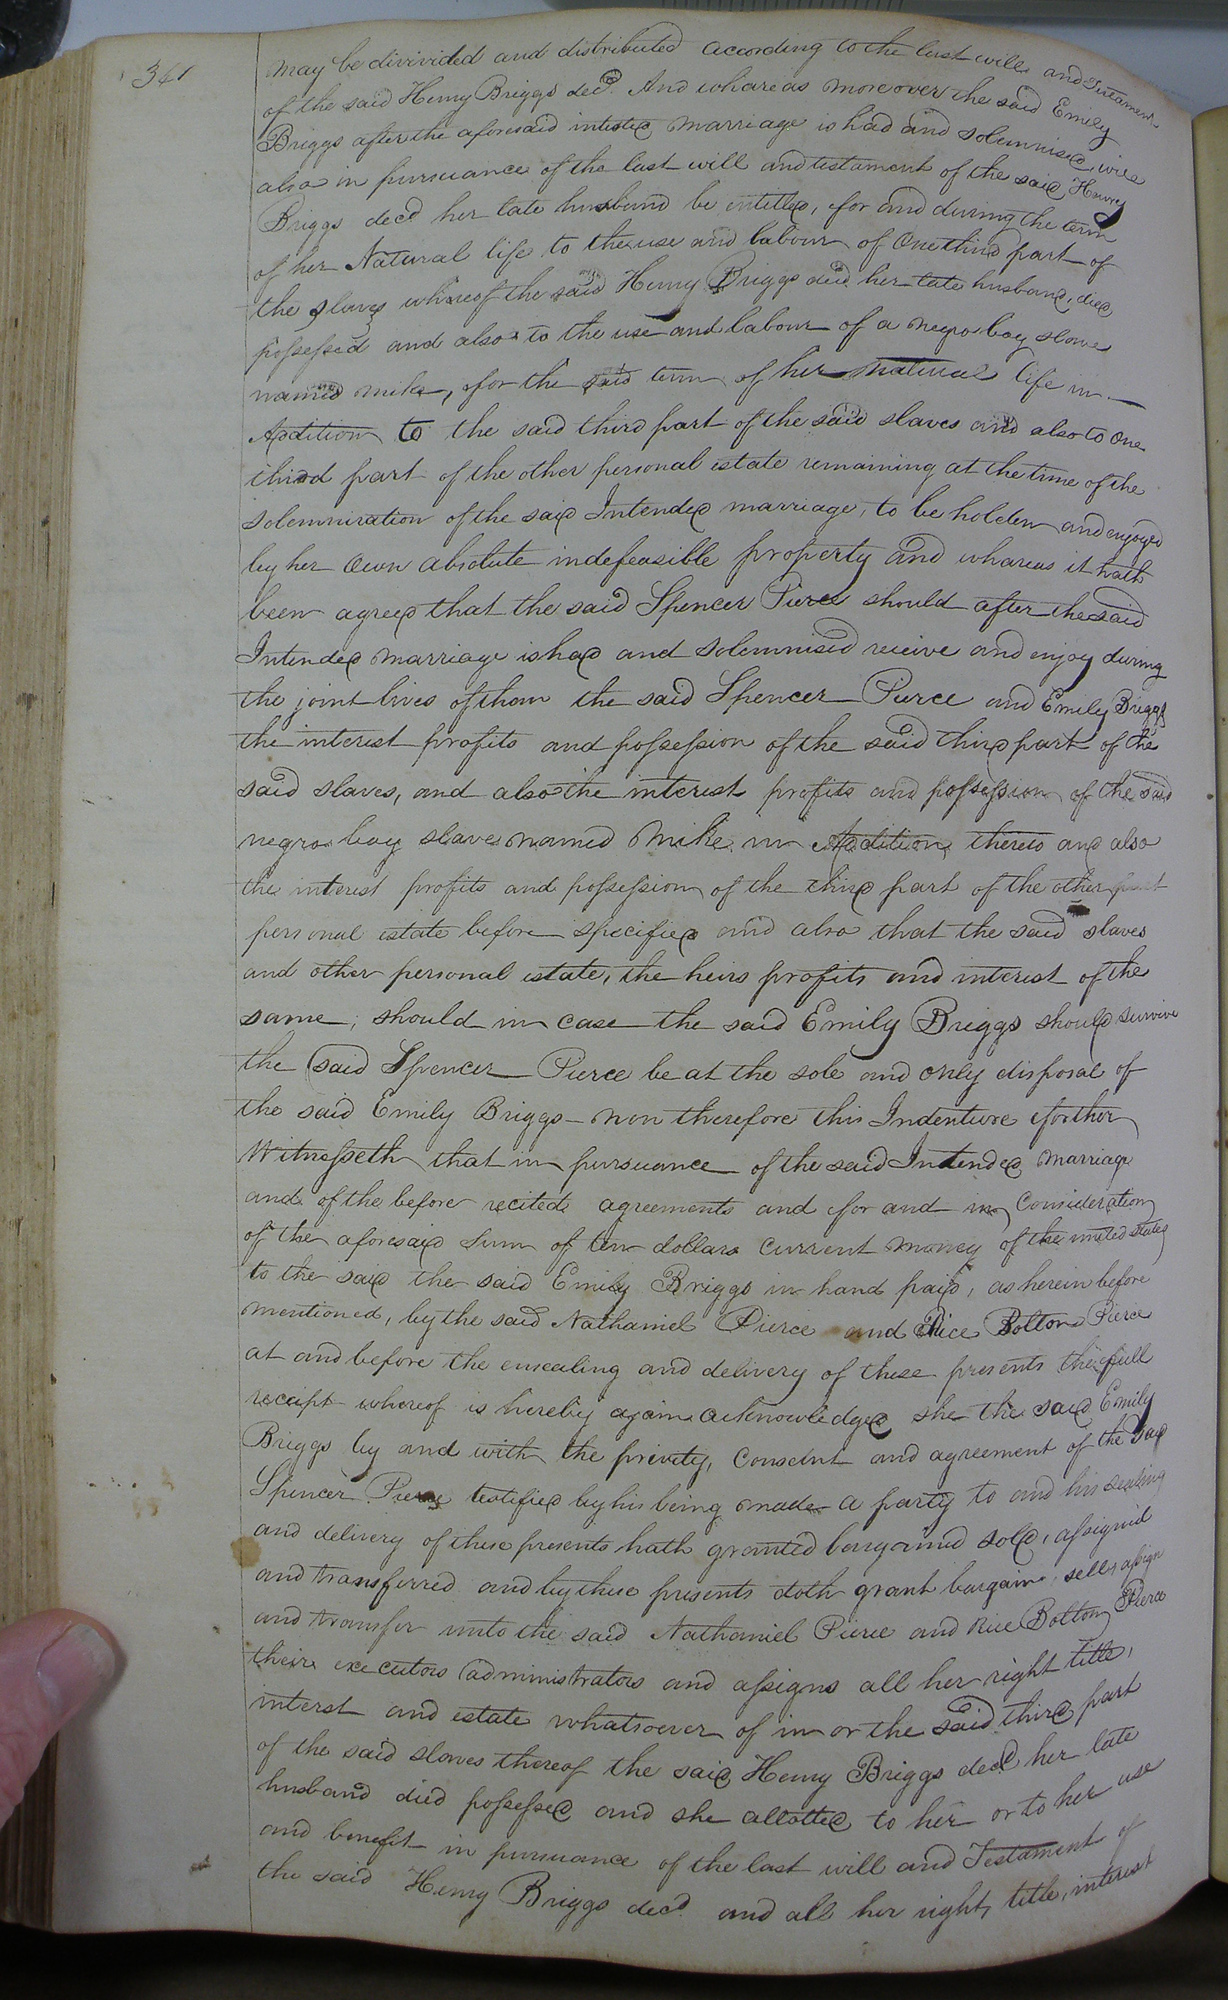 361
may be divivided and distributed according to the last will and Testament
of the said Henry Briggs decd. And whareas moreover the said Emily
Briggs after the aforesaid intested marriage is had and solemnised will
also in pursuance of the last will and testament of the said Henry
Briggs decd her late husband be intitled, for and during the term
of her Natural life to the use and labour of One third part of
the slaves whereof the said Henry Briggs decd her late husband, died
possessed and also to the use and labour of a negro boy slave
named mike, for the said term of her natural life in
Addition to the said third part of the said slaves and also to one
third part of the other personal estate remaining at the time of the
solemnization of the said Intended marriage, to be holden and enjoyed
by her own absolute indefeasible property and whareas it hath
been agreed that the said Spencer Pierce should after the said
Intended marriage is had and solemnised receive and enjoy during
the joint lives of them the said Spencer Pierce and Emily Briggs
the interest profits and possession of the said third part of the
said slaves, and also the interest profits and possession of the said
negro boy slave named Mike in Addition thereto and also
the interest profits and possession of the third part of the other part
personal estate before specified and also that the said slaves
and other personal estate, the heirs profits and interest of the
same, should in case the said Emily Briggs should survive
the said Spencer Pierce be at the sole and only disposal of
the said Emily Briggs - now therefore this Indenture forther
Witnesseth that in pursuance of the said Intended marriage
and of the before recited agreements and for and in Consideration
of the aforesaid Sum of ten dollars current money of the united states
to the said the said Emily Briggs in hand paid, as herein before
mentioned, by the said Nathaniel Pierce and Rice Bolton Pierce
at and before the ensealing and delivery of these presents the full
receipt whereof is hereby again acknowledged she the said Emily
Briggs by and with the privity, consent and agreement of the said
Spencer Pierce testified by his being made a party to and his sealing
and delivery of these presents hath granted bargained sold, assigned
and transferred and by these presents doth grant bargain, sell, assign
and transfer unto the said Nathaniel Pierce and Rice Bolton Pierce
their executors administrators and assigns all her right title,
interst and estate whatsoever of in or the said third part
of the said slaves thereof the said Henry Briggs decd her late
husband died possessed and she allotted to her or to her use
and benefit in pursuance of the last will and Testament of
the said Henry Briggs decd and all her right, title, interest